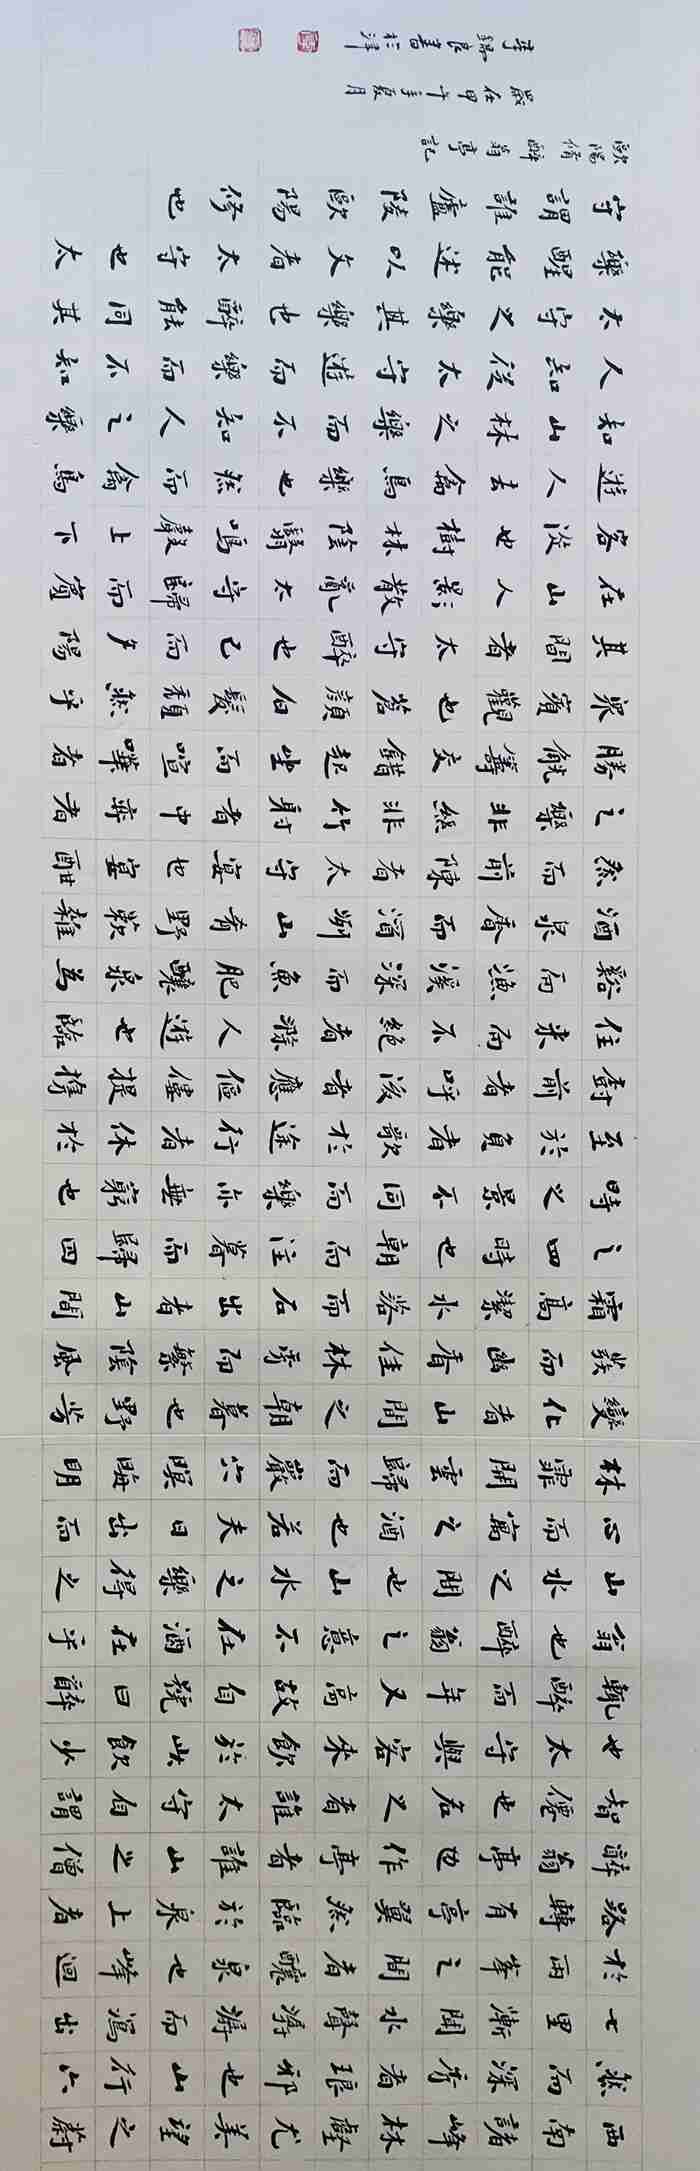 西南諸峰林壑尤美望之蔚
然而深秀者琅邪也山行六
七里漸聞水聲潺潺而瀉出
於兩峯之間者釀泉也峰迴
路轉有亭翼然臨於泉上者
醉翁亭也作亭者誰山之僧
智僊也名之者誰太守自謂
也太守與客來飲於此飲少
輒醉而年又高故自號曰醉
翁也醉翁之意不在酒在乎
山水之間也山水之樂得之
心而寓之酒也若夫日出而
林霏開雲歸而巖穴暝晦明
變化者山間之朝暮也野芳
發而幽香佳林秀而繁陰風
霜高潔水落而石出者山間
之四時也朝而往暮而歸四
時之景不同而樂亦無窮也
至於負者歌於途行者休於
樹前者呼後者應傴僂提攜
往來而不絕者滁人遊也臨
谿而漁溪深而魚肥釀泉為
酒泉香而酒冽山肴野蔌雜
然而前陳者太守宴也宴酣
之樂非絲非竹射者中弈者
勝觥籌交錯起坐而喧嘩者
眾賓歡也蒼顏白髮頹然乎
其間者太守醉也已而夕陽
在山人影散亂太守歸而賓
客從也樹林陰翳鳴聲上下
遊人去禽鳥樂也然而禽鳥
知山林之樂而不知人之樂
人知從太守遊而樂而不知
太守之樂其樂也醉能同其
樂醒能述以文者太守也太
守謂誰廬陵歐陽修也
歐陽脩醉翁亭記
歲在甲午夏月
李錫良書於津